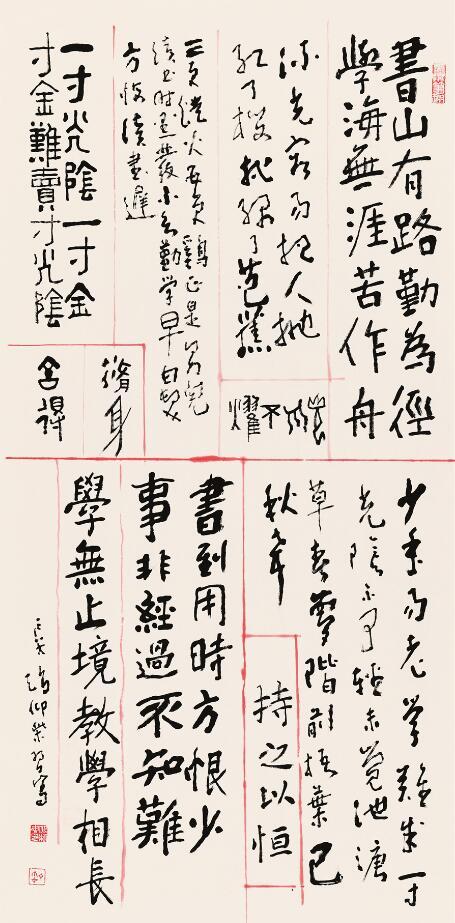 書山有路勤為徑
學海無涯苦作舟
流光容易把人抛
紅了櫻桃綠了芭蕉
光而不耀
三更燈火五更鷄正是男兒
讀書时黑髮不知勤學早白
方悔讀書遲
一寸光陰一寸金
寸金難買寸光陰
脩身
舍得
少年易老學難成一寸
光陰不可輕未覺池塘
草春夢階前梧葉已
秋聲
持之以恒
書到用時方恨少
事非經過不知難
學無止境教學相長